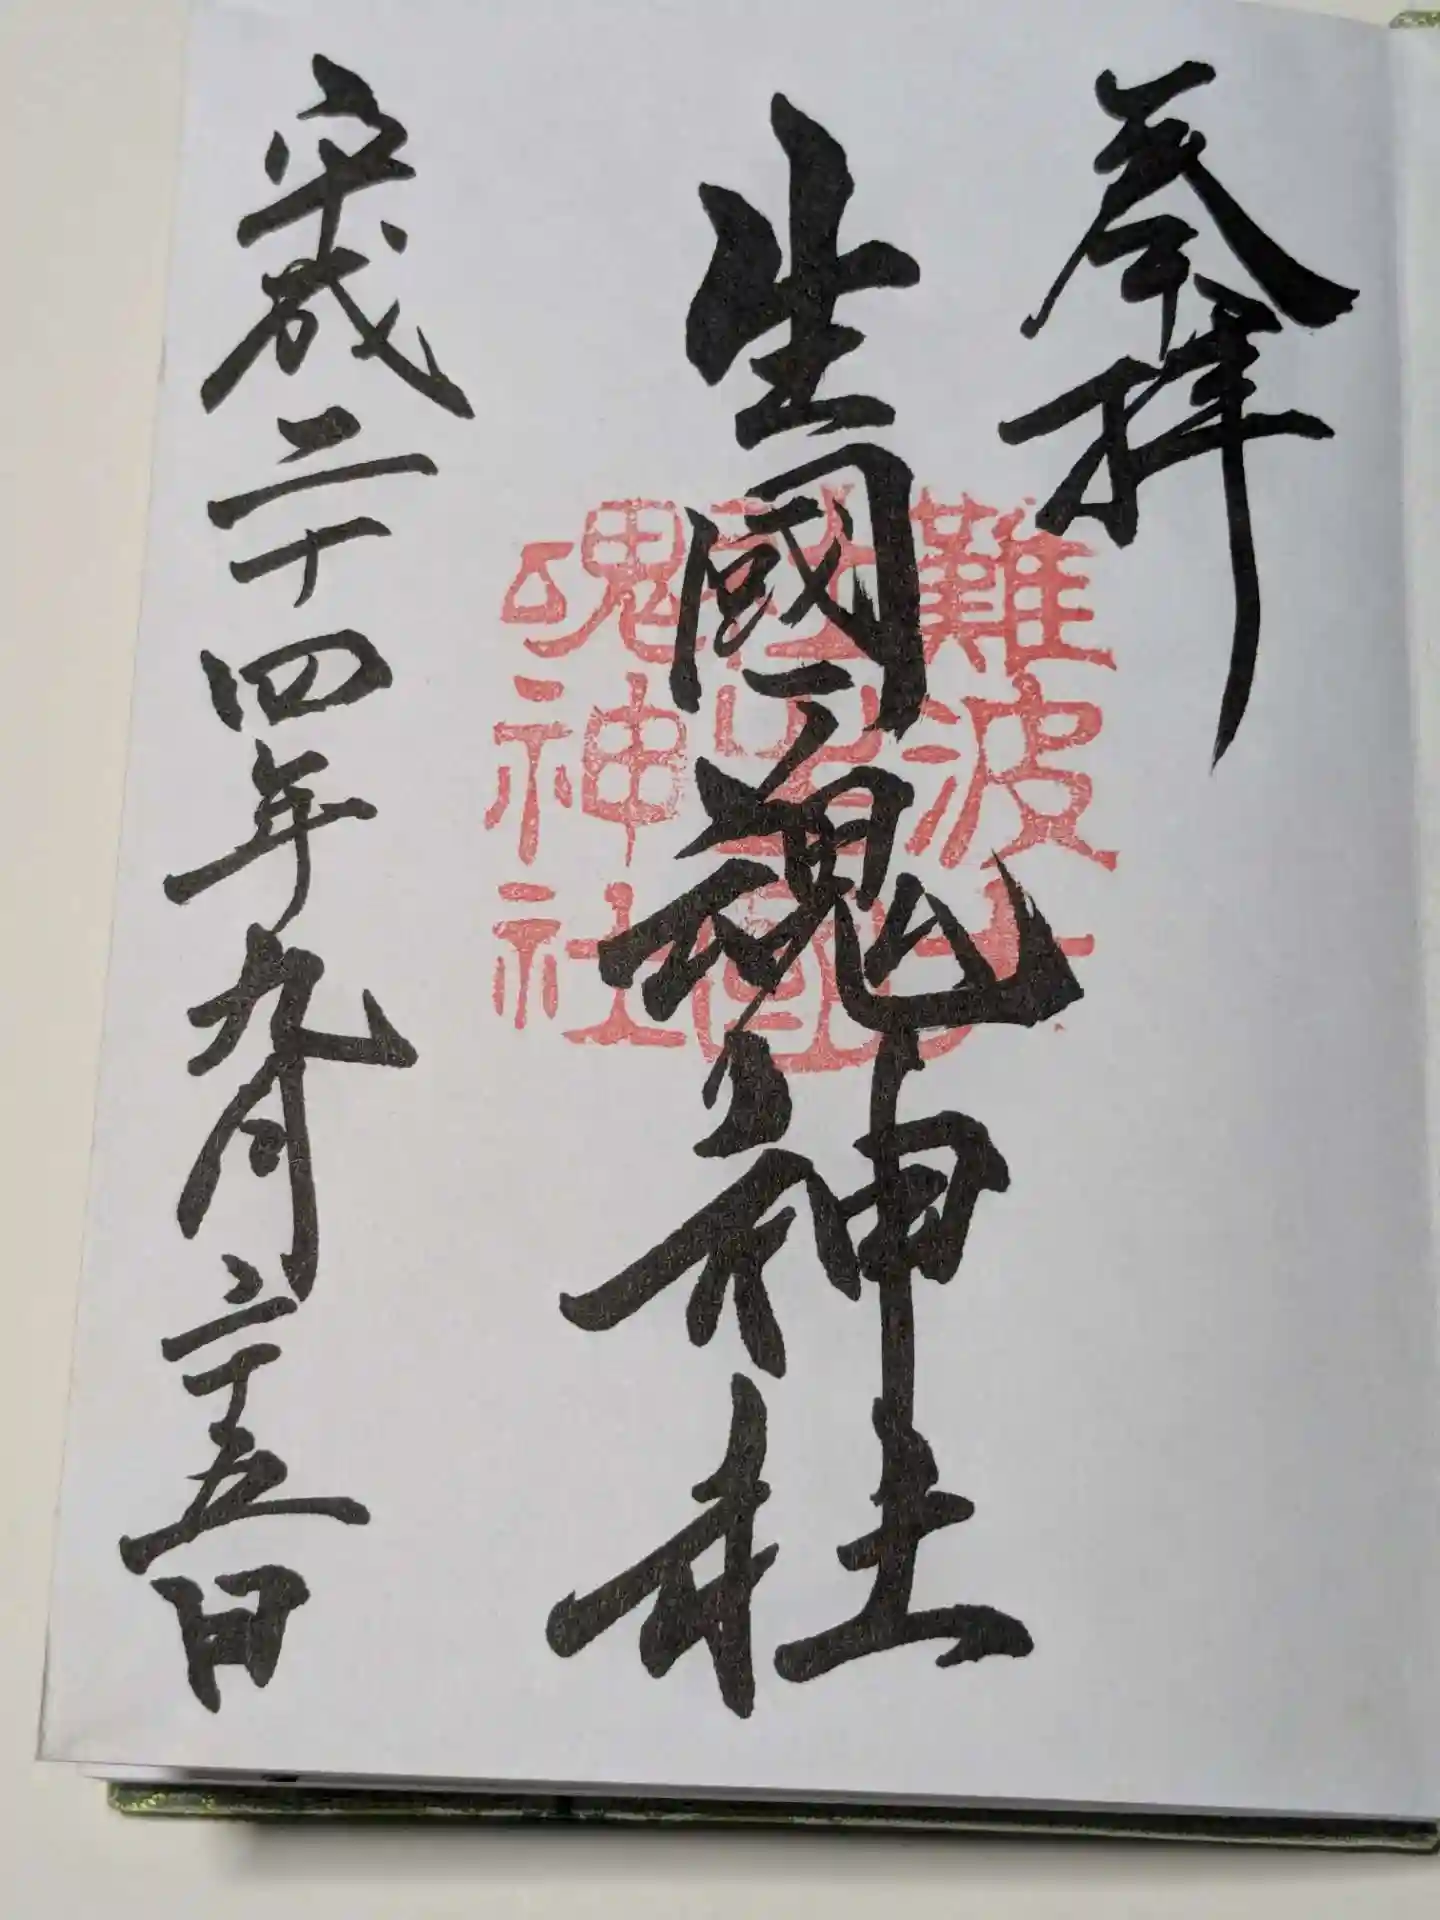 参拝
生國魂神社
難波大
社生國
魂神社
平成二十四年九月二十五日